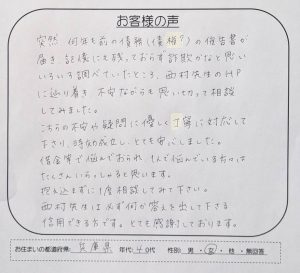 お客様の声
突然、何年も前の債務(債権?)の催告書が
届き、記憶にも残っておらず詐欺かなと思い
いろいろ調べていたところ、西村先生のHP
に辿り着き、不安ながらも思い切って相談
してみました。
こちらの不安や疑問に優しく丁寧に対応して
下さり、時効成立し、とても安心しました。
借金等で悩んでおられ、悩んでいる方々は
たくさんいらっしゃると思います。
抱え込まずに1度相談してみて下さい。
西村先生は必ず何か答えを出して下さる
信用できる方です。とても感謝しております。
お住まいの都道府県: 兵庫県 年代: 40代 性別: 男・女・他・無回答